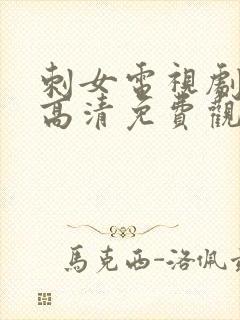 刺女電視劇
高清免費觀
馬克西-洛佩